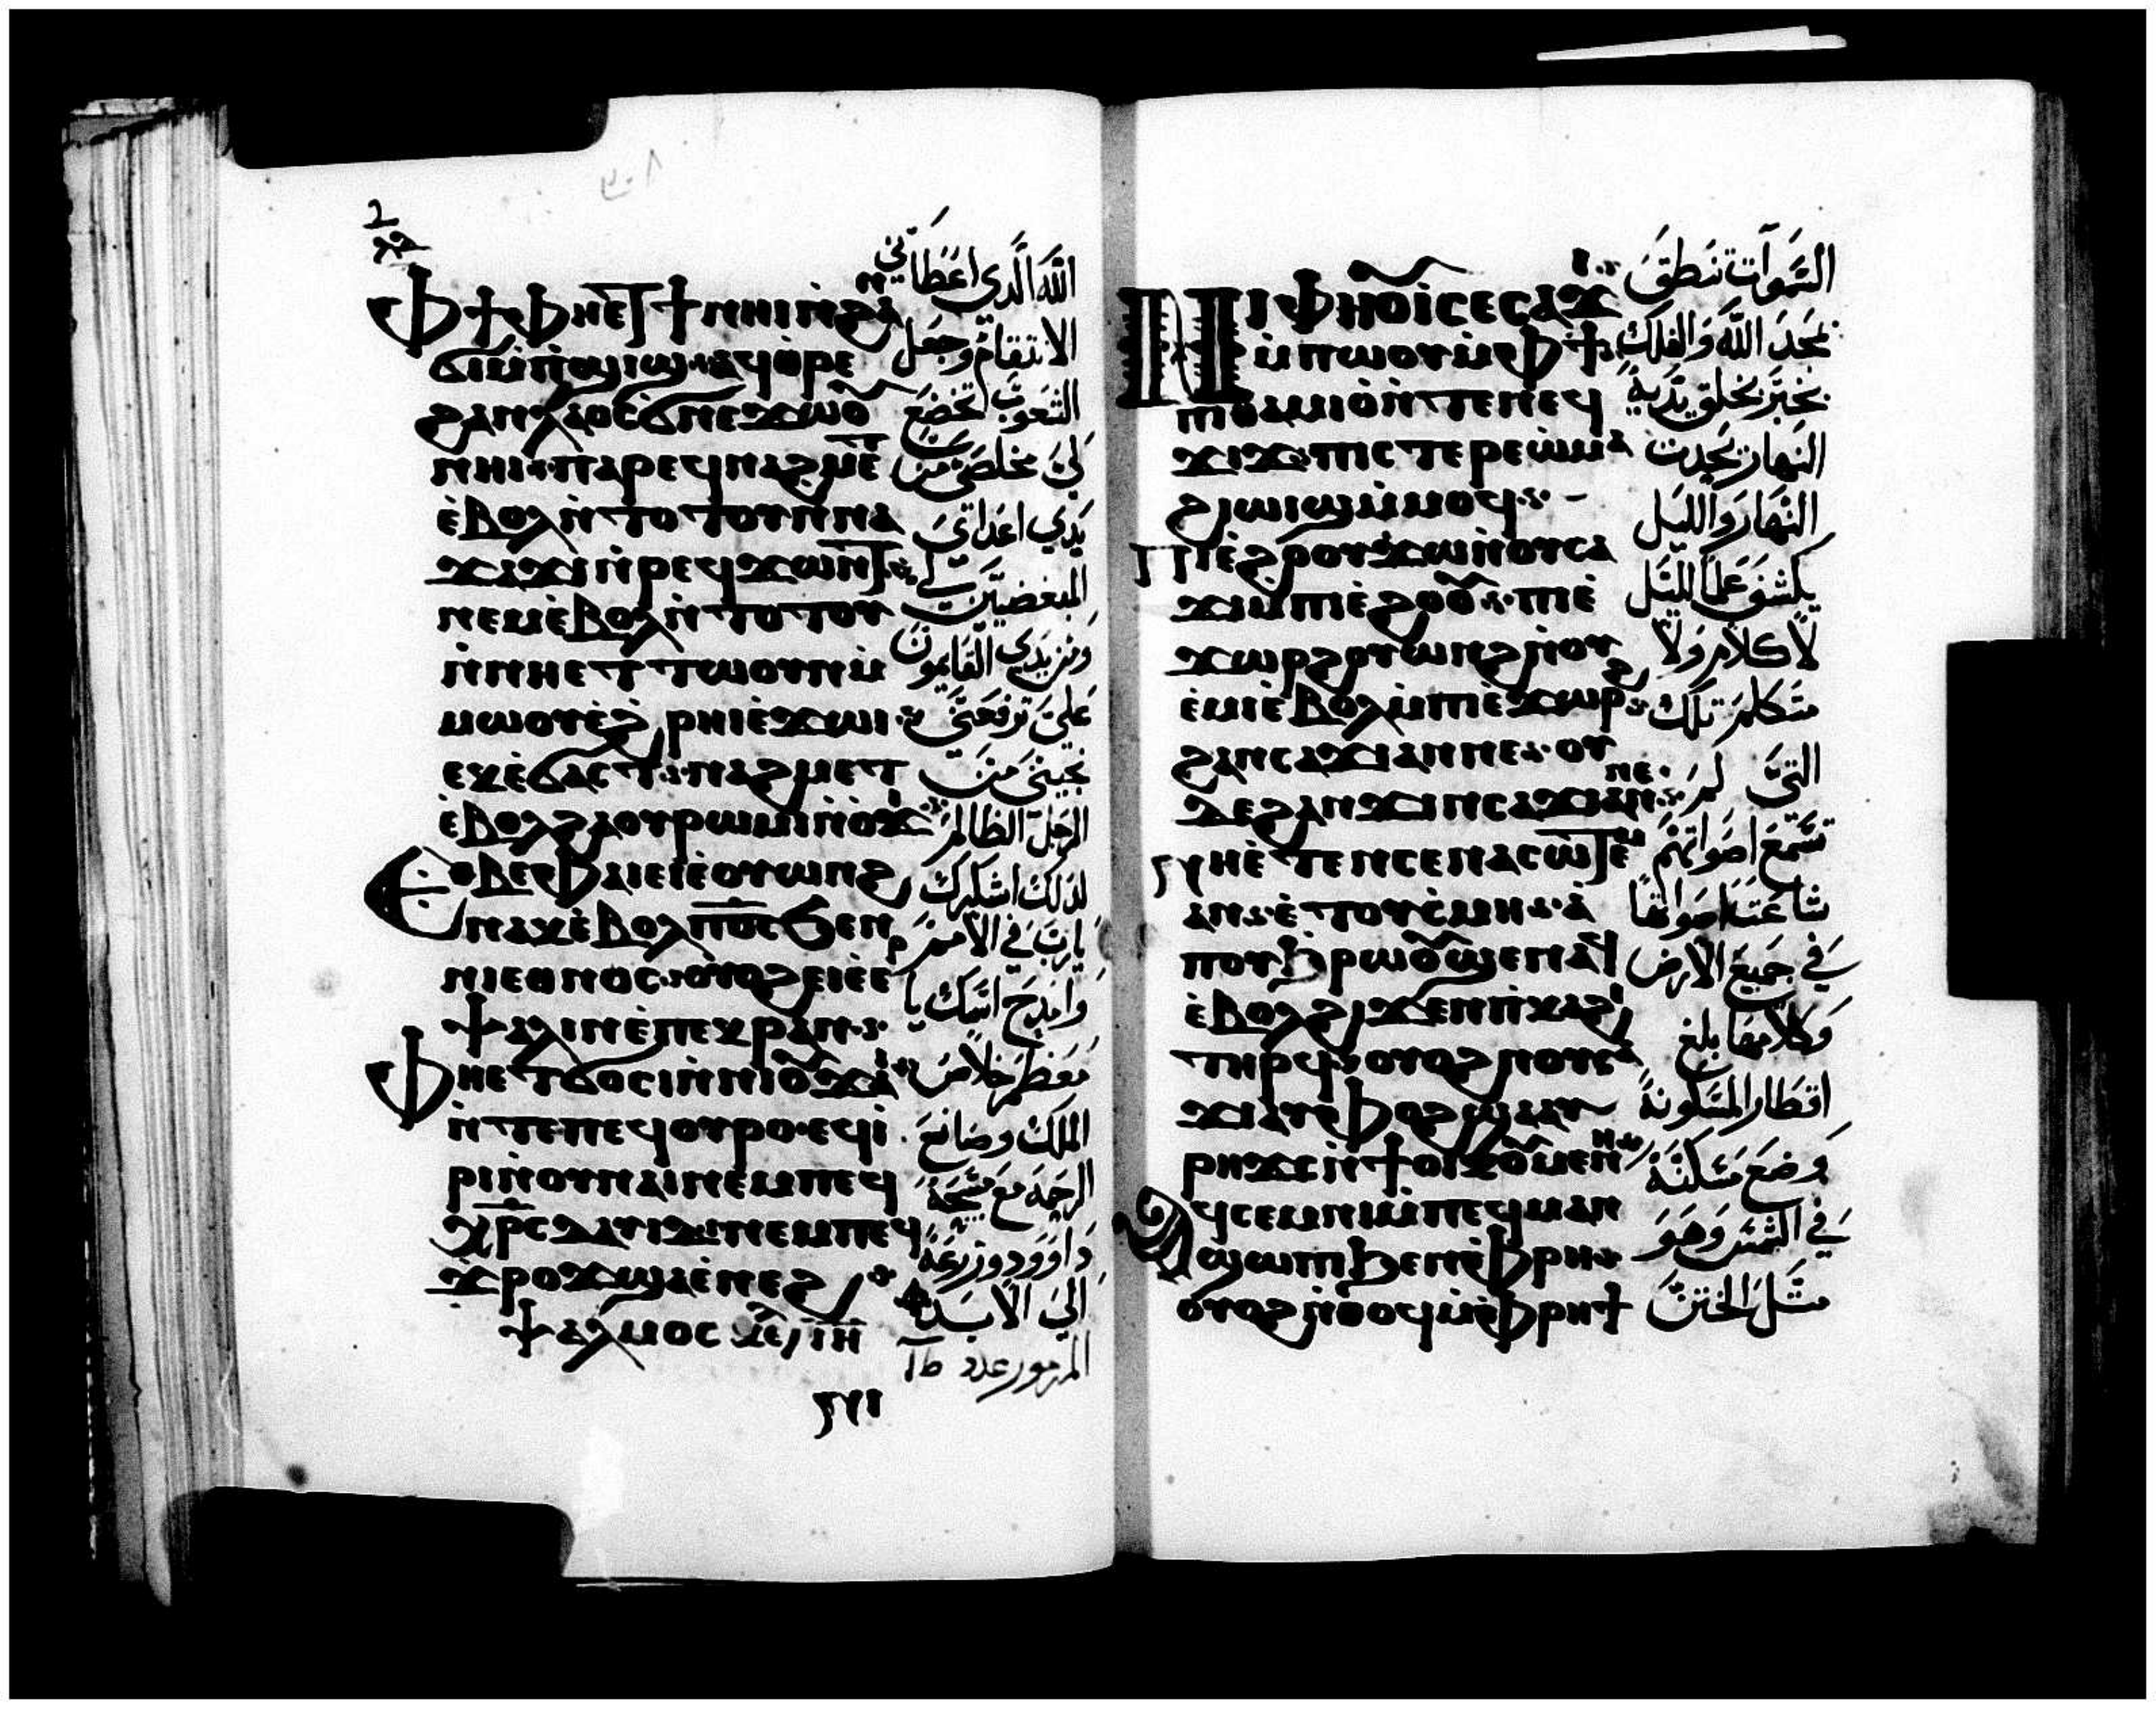 Ⲫϯ ⲫⲏⲉⲧϯ ⲛⲏⲓ ⲛ̀ϩⲁⲛ
ϭⲓⲙ̀ⲡ̀ϣⲓϣ ⲁϥⲑⲣⲉ
ϩⲁⲛⲗⲁⲟⲥ ϭⲛⲉϫⲱⲟⲩ
ⲛⲏⲓ ⲡⲁⲣⲉϥⲛⲁϩⲙⲉⲧ
ⲉ̀ⲃⲟⲗ ⲛ̀ⲧⲟⲧⲟⲩ ⲛ̀ⲛⲁ
ϫⲁϫⲓ ⲛ̀ⲣⲉϥϫⲱⲛⲧ
ⲛⲉⲙ ⲉ̀ⲃⲟⲗ ⲛ̀ⲧⲟⲧⲟⲩ
ⲛ̀ⲛⲏⲉⲧⲧⲱⲟⲩⲛ ⲙ̀
ⲙⲱⲟⲩ ⲉ̀ϩ̀ⲣⲏⲓ ⲉ̀ϫⲱⲓ
ⲉⲕⲉ̀ϭⲁⲥⲧ ⲛⲁϩⲙⲉⲧ
ⲉ̀ⲃⲟⲗ ϩⲁ ⲟⲩⲣⲱⲙⲓ ⲛ̀ⲟ̀ϫⲓ
Ⲉⲑⲃⲉⲫⲁⲓ ⲉⲓⲉ̀ⲟⲩⲱⲛϩ
ⲛⲁⲕ ⲉ̀ⲃⲟⲗ ⲡ̅ⲟ̅ⲥ̅ ϧⲉⲛ
ⲛⲓⲉⲑⲛⲟⲥ ⲟⲩⲟϩ ⲉⲓⲉ̀ⲉⲣ
ⲯⲁⲗⲓⲛ ⲉ̀ⲡⲉⲕⲣⲁⲛ
Ⲫⲏⲉⲧϭⲟⲥⲓ ⲛ̀ⲛⲓⲟⲩϫⲁⲓ
ⲛ̀ⲧⲉ ⲡⲉϥⲟⲩⲣⲟ ⲉϥⲓ̀
ⲣⲓ ⲛ̀ⲟⲩⲛⲁⲓ ⲛⲉⲙ ⲡⲉϥ
ⲭ̅ⲣ̅ⲥ̅ ⲇⲁⲩⲓⲇ ⲛⲉⲙ ⲡⲉϥ
ϫ̀ⲣⲟϫ ϣⲁ ⲉ̀ⲛⲉϩ
ⲯⲁⲗⲙⲟⲥ ⲓ̅ⲏ̅
اللَّه الَّدي اعَطَاَنِي
الانتقام وجعل
الشعوب تخضع
لي مخلصي من
يَدَي اعداتي
المبغضيَن لي
ومن يدي القايمون
عَليَ ترفعَني
نجيني مِن
الرَجلَ الظالم
لذلك اشكرك
يارب في الامم
وامدح اسمك يا
مَعَظم خلاص
الملك وصانع
الرحمة مع مسيحه
داوود وزرعه
الي الابد
المزمور عدد
Ⲛⲓⲫⲏⲟⲩⲓ ⲥⲉⲥⲁϫⲓ
ⲙ̀ⲡⲱⲟⲩ ⲙ̀ⲫϯ
ⲡⲑⲁⲙⲓⲟ̀ ⲛ̀ⲧⲉ ⲛⲉϥ
ϫⲓϫ ⲡⲓⲥⲧⲉⲣⲉⲱⲙⲁ
ϩⲓⲱⲓϣ ⲙ̀ⲙⲟϥ
Ⲡⲓⲉ̀ϩⲟⲟⲩ ϫⲱ ⲛ̀ⲟⲩⲥⲁ
ϫⲓ ⲙ̀ⲡⲓⲉ̀ϩⲟⲟⲩ ⲡⲓⲉ̀
ϫⲱⲣϩ ⲟⲩⲱⲛϩ ⲛ̀ⲟⲩ
ⲉ̀ⲙⲓ ⲉ̀ⲃⲟⲗ ⲙ̀ⲡⲓⲉ̀ϫⲱⲣϩ
ϩⲁⲛⲥⲁϫⲓ ⲁⲛ ⲛⲉ ⲟⲩ
ⲇⲉ ϩⲁⲛϫⲓⲛⲥⲁϫⲓ ⲁⲛ ⲛⲉ
ⲛⲏⲉ̀ⲧⲉ ⲛ̀ⲥⲉⲛⲁⲥⲱⲧⲉⲙ
ⲁⲛ ⲉ̀ⲧⲟⲩⲥ̀ⲙⲏ ⲁ̀
ⲡⲟⲩϧ̀ⲣⲱⲟⲩ ϣⲉⲛⲁϥ
ⲉ̀ⲃⲟⲗ ϩⲓϫⲉⲛ ⲡ̀ⲕⲁϩⲓ
ⲧⲏⲣϥ ⲟⲩⲟϩ ⲛⲟⲩⲥⲁ
ϫⲓ ⲁⲩⲫⲟϩ ϣⲁ ⲁⲩ
ⲣⲏϫⲥ ⲛ̀ϯⲟⲓⲕⲟⲩⲙⲉⲛⲏ
Ⲁϥⲥⲉⲙⲛⲓ ⲙ̀ⲡⲉϥⲙⲁⲛ
ϣⲱⲡⲓ ϧⲉⲛ ⲫ̀ⲣⲏ
ⲟⲩⲟϩ ⲛ̀ⲑⲟϥ ⲙ̀ⲫ̀ⲣⲏϯ
السَّموَآت تنطق
بمجد اللَّه وَالفلك
يخبَّر بخلق يدَيه
النهار يحدث
النَهار وَاللّيل
يكشف عَلم اللَّيل
لا كلام وَلا
متكلم تلك
التي لم
تسمع اصواتهم
اصواتها
في جميع الارض
وَكلامها بلغ
اقطار المسكونة
وَضعَ مسكنه
في الشمس وَهوَ
مثَل الختن